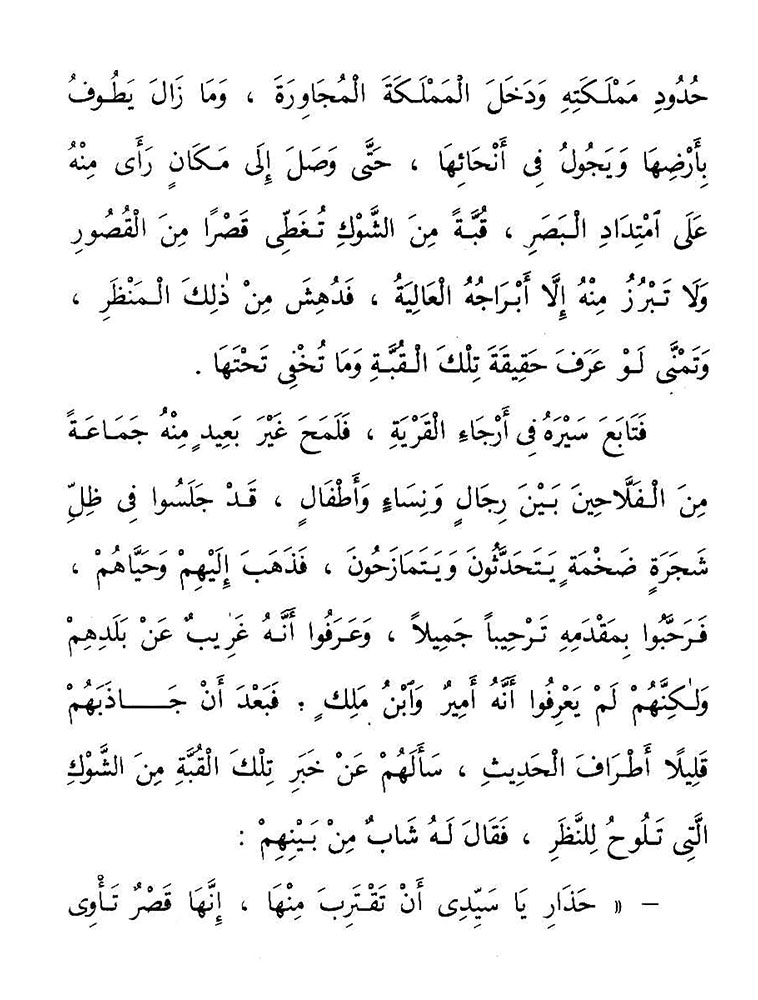 حُدُودِ مَمْلَكَتِهِ وَدَخَلَ الْمَمْلَكَةَ الْمُجَاوِرَةَ ، وَمَا زَالَ يَطُوفُ
بِأَرْضِهَا وَيَجُولُ فِى أَنْحَائِهَا ، حَتَّى وَصَلَ إِلَى مَكَانٍ رَأَى مِنْهُ
عَلَى ٱمْتِدَادِ الْبَصَرِ ، قُبَّةً مِنَ الشَّوْكِ تُغَطِّى قَصْرًا مِنَ الْقُصُورِ
وَلَا تَبْرُزُ مِنْهُ إِلَّا أَبْرَاجُهُ الْعَالِيَةُ ، فَدُهِشَ مِنْ ذٰلِكَ الْمَنْظَرِ ،
وَتَمْنَّى لَوْ عَرَفَ حَقِيقَةَ تِلْكَ الْقُبَّةِ وَمَا تُخْفِى تَحْتَهَا .
فَتَابَعَ سَيْرَهُ فِى أَرْجَاءِ الْقَرْيَةِ ، فَلَمَحَ غَيْرَ بَعِيدٍ مِنْهُ جَمَاعَةً
مِنَ الْفَلَّاحِينَ بَيْنَ رِجَالٍ وَنِسَاءٍ وَأَطْفَالٍ ، قَدْ جَلَسُوا فِى ظِلِّ
شَجَرَةٍ ضَخْمَةٍ يَتَحَدَّثُونَ وَيَتَمَازَحُونَ ، فَذَهَبَ إِلَيْهِمْ وَحَيَّاهُمْ ،
فَرَحَّبُوا بِمَقْدَمِهِ تَرْحِيباً جَمِيلاً ، وَعَرَفُوا أَنَّهُ غَرِيبٌ عَنْ بَلَدِهِمْ
وَلٰكِنَّهُمْ لَمْ يَعْرِفُوا أَنَّهُ أَمِيرٌ وَٱبْنُ مَلِكٍ . فَبَعْدَ أَنْ جَـــاذَبَهُمْ
قَلِيلًا أَطْرَافَ الْحَدِيثِ ، سَأَلَهُمْ عَنْ خَبَرِ تِلْكَ الْقُبَّةِ مِنَ الشَّوْكِ
الَّتِى تَلُوحُ لِلنَّظَرِ ، فَقَالَ لَهُ شَابٌ مِنْ بَيْنِهِمْ :
– « حَذَارِ يَا سَيِّدِى أَنْ تَقْتَرِبَ مِنْهَا ، إِنَّهَا قَصْرٌ تَأْوِى